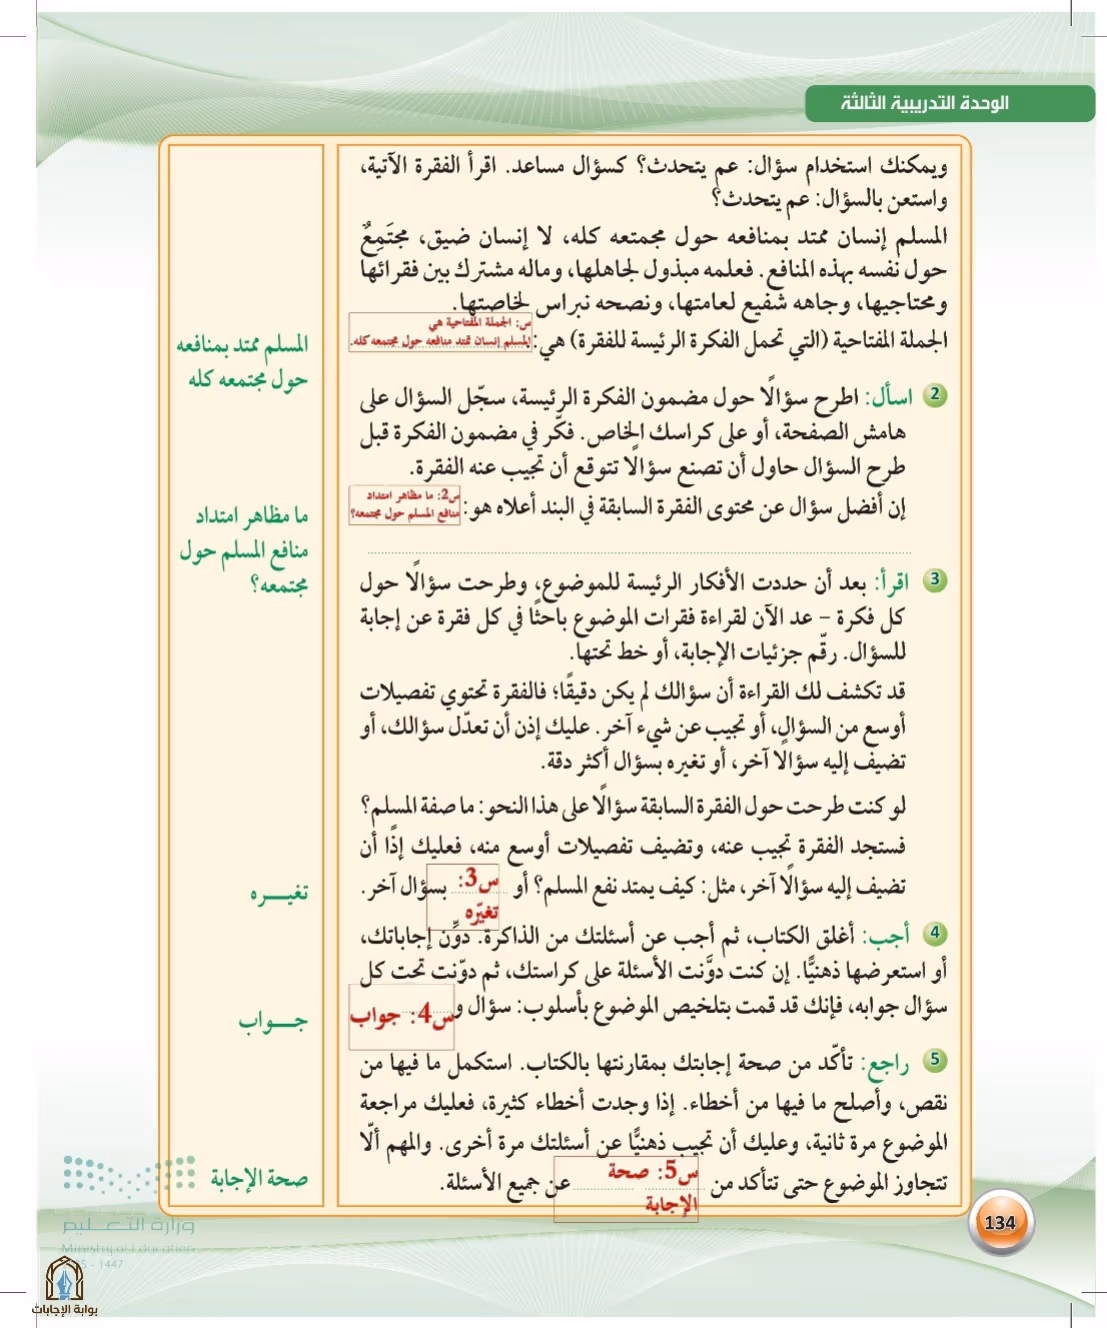 الوحدة التدريبية الثالثة
ويمكنك استخدام سؤال: عم يتحدث؟ كسؤال مساعد. اقرأ الفقرة الآتية،
واستعن بالسؤال: عم يتحدث؟
المسلم إنسان ممتد بمنافعه حول مجمتعه كله، لا إنسان ضيق، مجتَمِعٌ
حول نفسه بهذه المنافع. فعلمه مبذول لجاهلها، وماله مشترك بين فقرائها
ومحتاجيها، وجاهه شفيع لعامتها، ونصحه نبراس لخاصتها.
س: الجملة المفتاحية هي
الجملة المفتاحية (التي تحمل الفكرة الرئيسة للفقرة) هي:
المسلم إنسان تمتد منافعه حول مجتمعه كله.
المسلم ممتد بمنافعه
حول مجتمعه كله
2 اسأل: اطرح سؤالًا حول مضمون الفكرة الرئيسة، سجّل السؤال على
هامش الصفحة، أو على كراسك الخاص. فكّر في مضمون الفكرة قبل
طرح السؤال حاول أن تصنع سؤالًا تتوقع أن تجيب عنه الفقرة.
إن أفضل سؤال عن محتوى الفقرة السابقة في البند أعلاه هو:
س2: ما مظاهر امتداد
منافع المسلم حول مجتمعه؟
ما مظاهر امتداد
منافع المسلم حول
مجتمعه؟
3 اقرأ: بعد أن حددت الأفكار الرئيسة للموضوع، وطرحت سؤالًا حول
كل فكرة – عد الآن لقراءة فقرات الموضوع باحثًا في كل فقرة عن إجابة
للسؤال. رقّم جزئيات الإجابة، أو خط تحتها.
قد تكشف لك القراءة أن سؤالك لم يكن دقيقًا؛ فالفقرة تحتوي تفصيلات
أوسع من السؤال، أو تجيب عن شيء آخر. عليك إذن أن تعدّل سؤالك، أو
تضيف إليه سؤالًا آخر، أو تغيره بسؤال أكثر دقة.
لو كنت طرحت حول الفقرة السابقة سؤالًا على هذا النحو: ما صفة المسلم؟
فستجد الفقرة تجيب عنه، وتضيف تفصيلات أوسع منه، فعليك إذًا أن
تضيف إليه سؤالًا آخر، مثل: كيف يمتد نفع المسلم؟ أو س3: بسؤال آخر.
تغيّره
تغيـــره
4 أجب: أغلق الكتاب، ثم أجب عن أسئلتك من الذاكرة. دوِّن إجاباتك،
أو استعرضها ذهنيًّا. إن كنت دوَّنت الأسئلة على كراستك، ثم دوّنت تحت كل
سؤال جوابه، فإنك قد قمت بتلخيص الموضوع بأسلوب: سؤال و س4: جواب
جـــواب
5 راجع: تأكّد من صحة إجابتك بمقارنتها بالكتاب. استكمل ما فيها من
نقص، وأصلح ما فيها من أخطاء. إذا وجدت أخطاء كثيرة، فعليك مراجعة
الموضوع مرة ثانية، وعليك أن تجيب ذهنيًّا عن أسئلتك مرة أخرى. والمهم ألّا
تتجاوز الموضوع حتى تتأكد من س5: صحة عن جميع الأسئلة.
الإجابة
صحة الإجابة
وزارة التعـــليم
Ministry of Education
1447
134
بوابة الإجابات